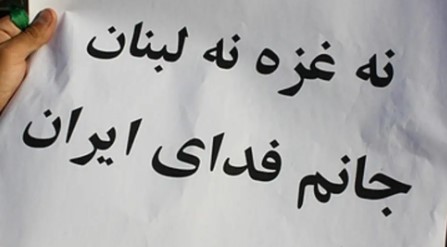 نه غزه نه لبنان
جانم فدای ایران